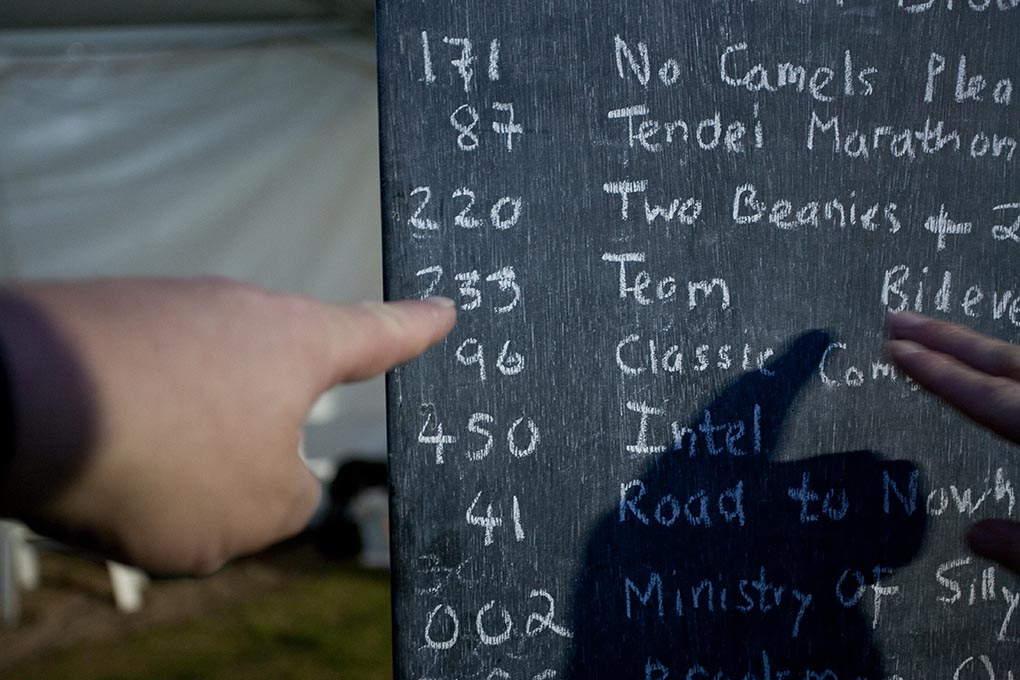 171 No Camels Plea
87 Tendei Marathon
220 Two Beanies + 2
233 Team Bideve
96 Classic Com
450 Intel
41 Road to Nowh
002 Ministry Of Silly